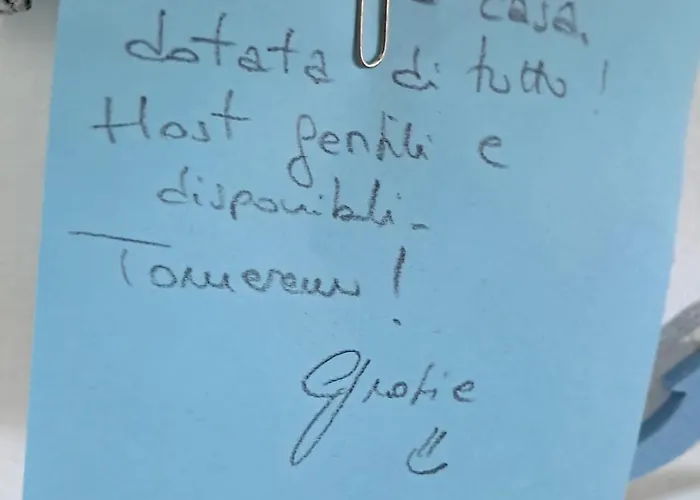 casa,
dotata di tutto!
Host gentili e
disponibili -
Torneremo!
Grazie